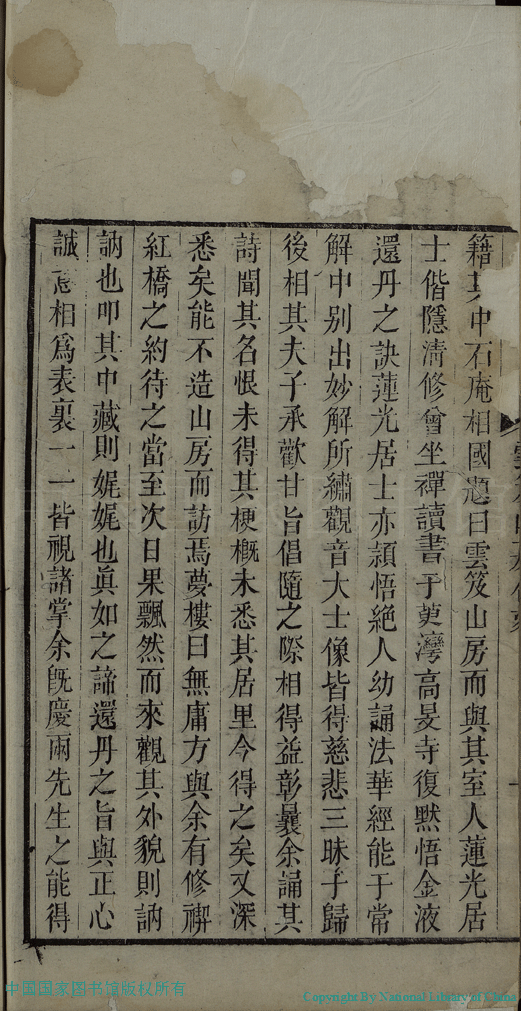 籍其中石庵相國題曰雲笈山房而與其室人蓮光居
士偕隱淸修曾坐禪讀書于萸灣高旻寺復默悟金液
還丹之訣蓮光居士亦頴悟絶人幼誦法華經能于常
解中别出妙解所繡觀音大士像皆得慈悲三昧于歸
後相其夫子承歡甘旨倡隨之際相得益彰曩余誦其
詩聞其名恨未得其梗概未悉其居里今得之矣又深
悉矣能不造山房而訪焉夢樓曰無庸方與余有修禊
紅橋之約待之當至次日果飄然而來觀其外貌則訥
訥也叩其中藏則娓娓也眞如之諦還丹之旨與正心
誠意相爲表裏一一皆視諸掌余旣慶兩先生之能得
中国国家图书馆版权所有
Copyright By National Library of China